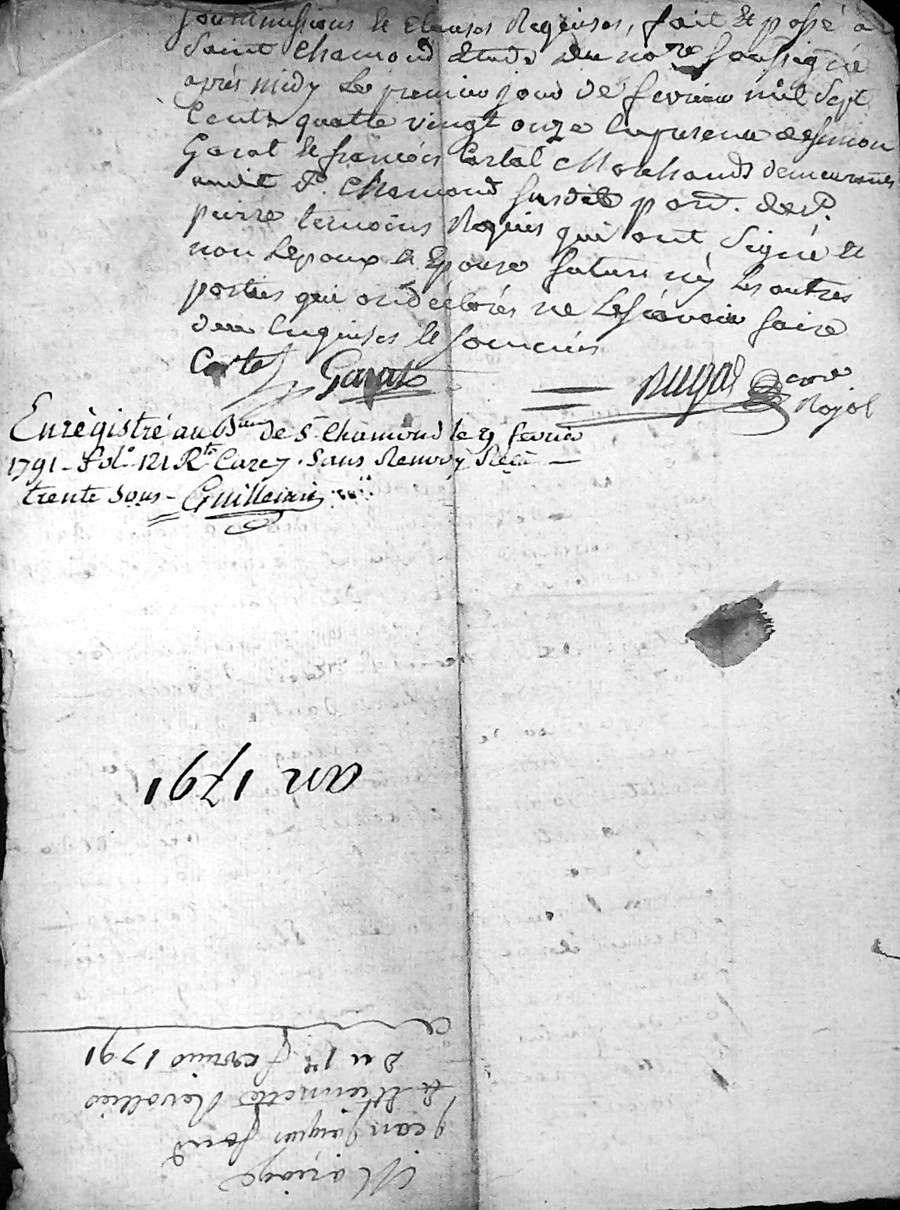 soummissions et clauses Requises, fait et passé a
Saint Chamond étude du no.re soussigné
après midy le premier jour de fevrier mil Sept
Cents quatre vingt onze En presence de simon
Garat et françois Cartal Marchands demeurants
audit St. Chamond susdite par. de St.
pierre temoins Requis qui ont Signé et
non Lepoux et Epouse futurs ny les autres
parties qui ont déclarés ne le sçavoir faire
de ce Enquises et sommées
Cartal Garat Dugas
Royal
Enrégistré au B.eau de St. Chamond le 9 fevrier
1791 - fol.o 121 R.to Cazey. Sans Renvoy Reçu
trente sous - Guillemin
an 1791
Mariage
Jean Jacques font
et Etiennette Revollier
Du 1er fevrier 1791